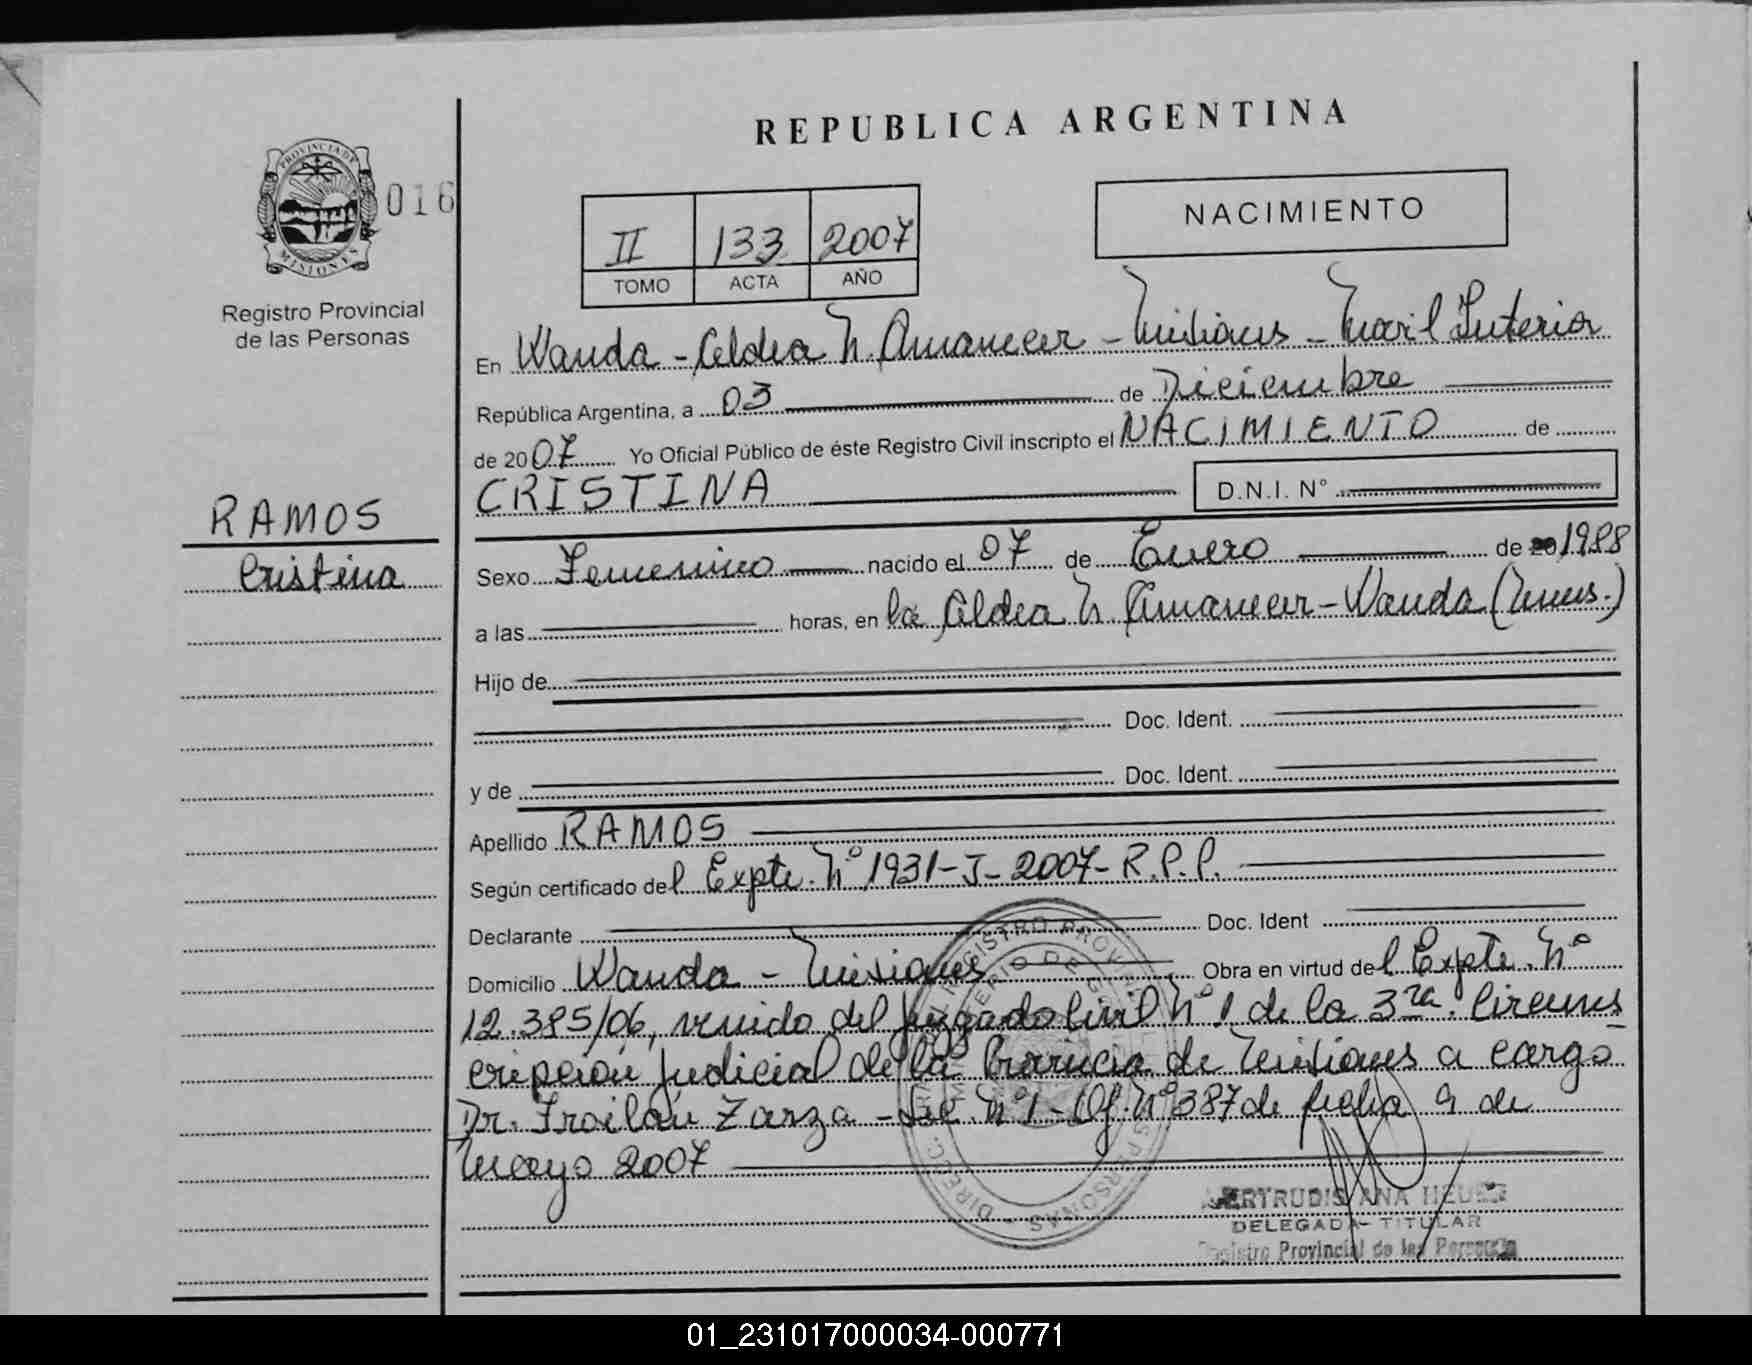 REPUBLICA ARGENTINA
PROVINCIA DE MISIONES
016
Registro Provincial
de las Personas
II 133 2007
TOMO ACTA AÑO
NACIMIENTO
En Wanda - Aldea N. Amanecer - Misiones - Movil Interior
República Argentina, a 03 de Diciembre
de 2007 Yo Oficial Público de éste Registro Civil inscripto el NACIMIENTO de
CRISTINA D.N.I. N°
RAMOS
Cristina
Sexo Femenino nacido el 07 de Enero de 20 1988
a las horas, en la Aldea N. Amanecer - Wanda (Mnes.)
Hijo de
Doc. Ident.
y de Doc. Ident.
Apellido RAMOS
Según certificado del Expte. N° 1931-J-2007-R.P.P.
Declarante Doc. Ident
Domicilio Wanda - Misiones Obra en virtud del Expte. N°
12.385/06, venido del Juzgado Civil N° 1 de la 3ra. Circuns
cripción Judicial de la Provincia de Misiones a cargo
Dr. Froilán Zarza - Sec. N° 1 - Of. N° 387 de fecha 9 de
Mayo 2007
GERTRUDIS ANA
DELEGADA TITULAR
Registro Provincial de las Personas
01_231017000034-000771